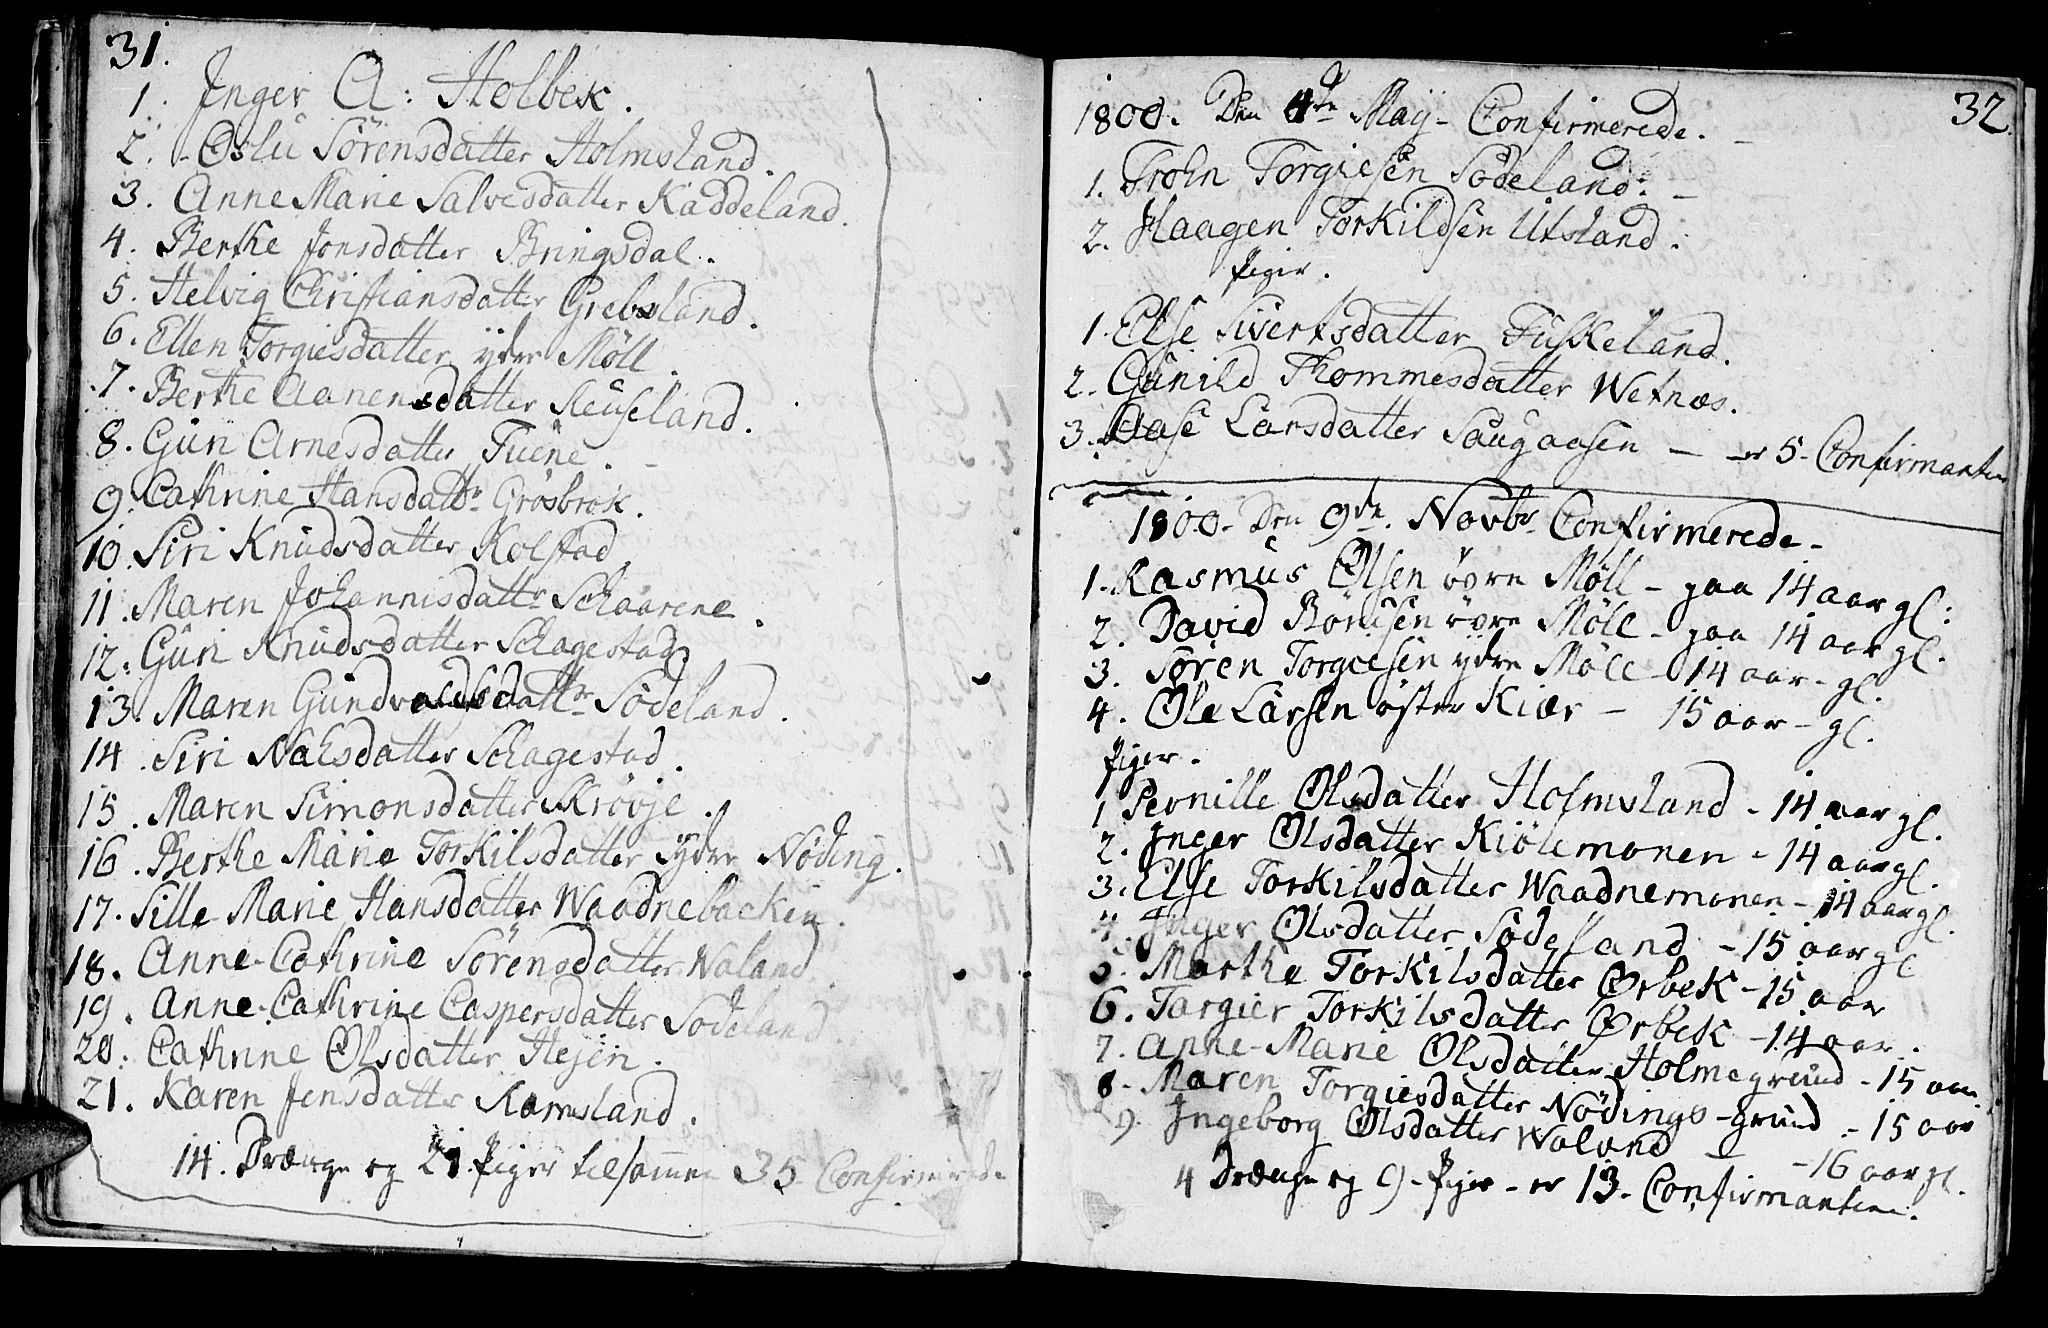 31.
1. Inger A: Holbek.
2. Oslu Sörensdatter Holmsland.
3. Anne Marie Salvesdatter Kaddeland.
4. Berthe Jonsdatter Bringsdal.
5. Helvig Christiansdatter Grebsland.
6. Ellen Torgiesdatter ydre Möll.
7. Berthe Aanensdatter
8. Guri Arnesdatter Tuene.
9. Cathrine Hansdattr Grosbrok.
10. Siri Knudsdatter Kolstad
11. Maren Johannisdattr Schaarene.
12. Guri Knudsdatter Schagestad
13. Maren Gundvaldsdattr Södeland.
14. Siri Nielsdatter Schagestad.
15. Maren Simonsdatter Skröyje.
16. Berthe Marie Torkilsdatter ydre Nöding.
17. Sille Marie Hansdatter Waadnebacken.
18. Anne Cathrine Sörensdatter Waland
19. Anne Cathrine Caspersdatter Södeland
20. Cathrine Olsdatter Hejen.
21. Karen Jensdatter Ramsland.
14. Drænge og 21. Piger tilsammen 35 Confirmerede
32.
1800. Den 4de Maij Confirmerede.
1. Trohn Torgiesen Södeland.
2. Haagen Torkildsen Utsland.
Piger.
1. Else Sivertsdatter Fuskeland.
2. Gunild Thommesdatter Wetnæs.
3. Aase Larsdatter Saugaasen – er 5 Confirmanter
1800. Den 9de Novbr Confirmerede.
1. Rasmus Olsen övre Möll – paa 14 aar gl:
2. David övre Möll – paa 14 aar gl.
3. Sören Torgiesen ydre Möll – 14 aar – gl.
4. Ole Larsen öster Kiær – 15 aar – gl.
Piger.
1 Pernille Olsdatter Holmsland – 14 aar gl.
2. Inger Olsdatter Kiölemonen – 14 aar gl.
3. Else Torkilsdatter Waadnemonen – 14 aar gl.
4. Inger Olsdatter Södeland – 15 aar gl
5. Marthe Torkilsdatter Ørbek – 15 aar
6. Targier Torkilsdatter Ørbek – 14 aar.
7. Anne-Marie Olsdatter Holmegrund – 15 aar.
8. Maren Torgiesdatter Nödings-grund – 15 aar
9. Ingeborg Olsdatter Waland – 16 aar gl.
4 Drænge og 9 – Piger – er 13. Confirmantere.